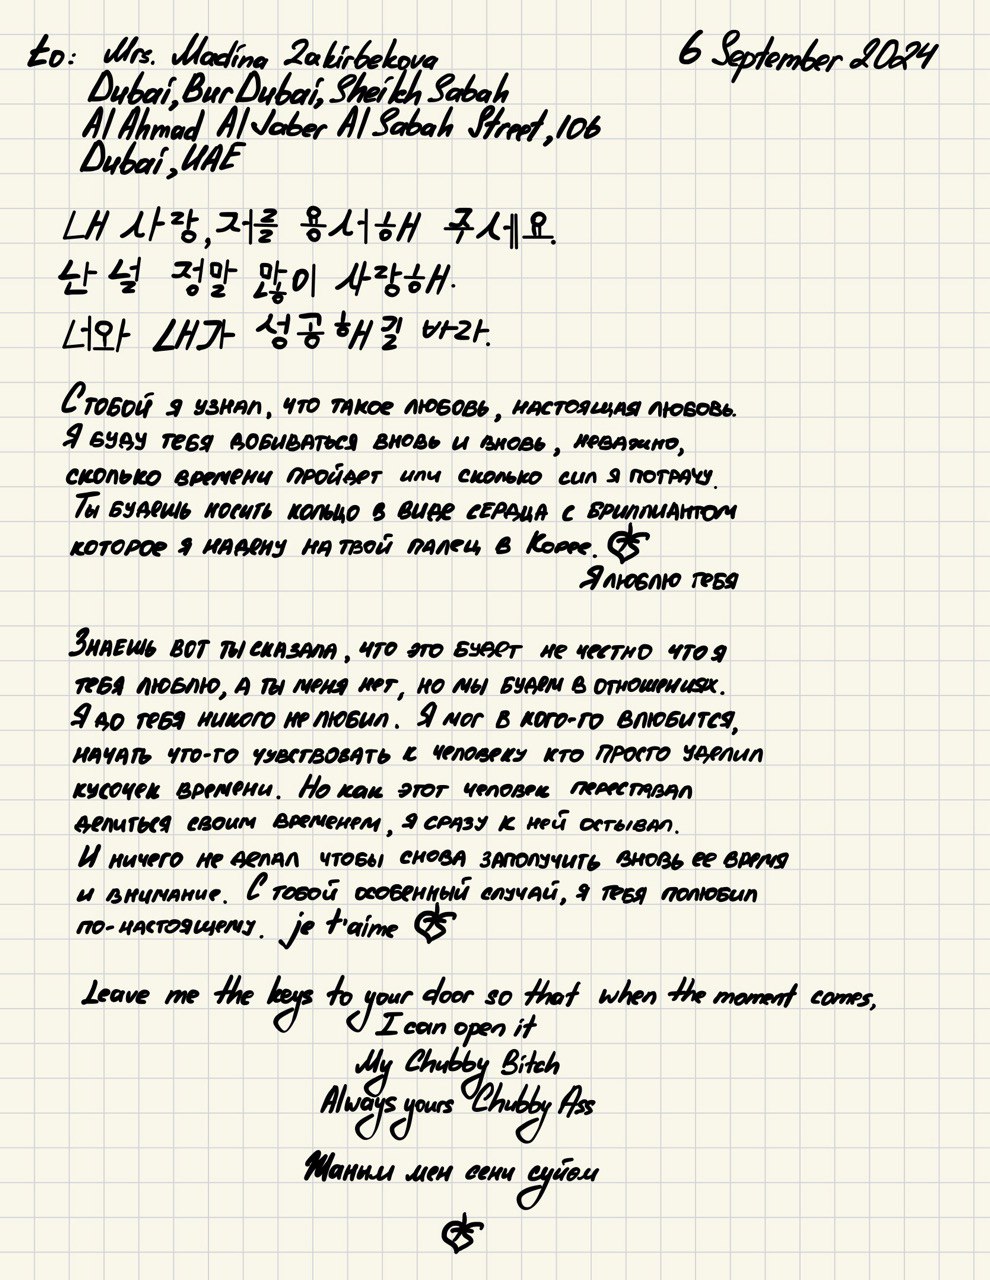 to: Mrs. Madina Zakirbekova
6 September 2024
Dubai, Bur Dubai, Sheikh Sabah
Al Ahmad Al Jaber Al Sabah Street, 106
Dubai, UAE
내 사랑, 저를 용서해 주세요.
난 널 정말 많이 사랑해.
너와 내가 성공해길 바라.
С тобой я узнал, что такое любовь, настоящая любовь.
Я буду тебя добиваться вновь и вновь, неважно,
сколько времени пройдет или сколько сил я потрачу.
Ты будешь носить кольцо в виде сердца с бриллиантом
которое я надену на твой палец в Корее.
Я люблю тебя
Знаешь вот ты сказала, что это будет не честно что я
тебя люблю, а ты меня нет, но мы будем в отношениях.
Я до тебя никого не любил. Я мог в кого-го влюбится,
начать что-то чувствовать к человеку кто просто уделил
кусочек времени. Но как этот человек переставал
делиться своим временем, я сразу к ней остывал.
И ничего не делал чтобы снова заполучить вновь ее время
и внимание. С тобой особенный случай, я тебя полюбил
по-настоящему. je t'aime
Leave me the keys to your door so that when the moment comes,
I can open it
My Chubby Bitch
Always yours Chubby Ass
Жаным мен сени суйем